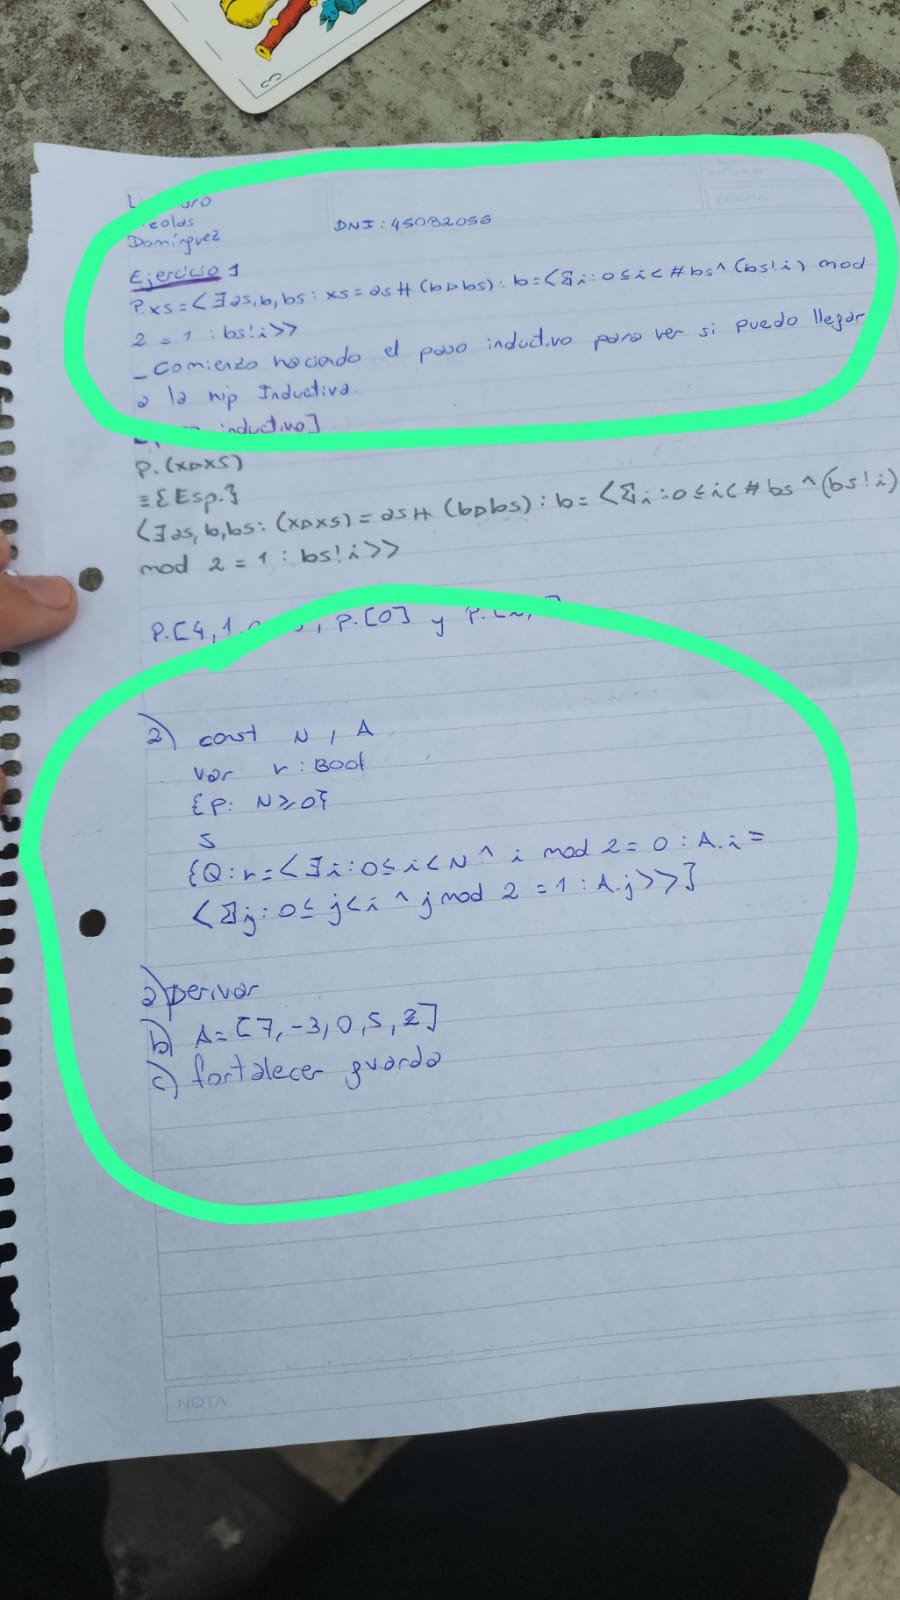 3
HOJA Nº
FECHA
Domínguez
DNI: 45082056
Ejercicio 1
P.xs=<∃as,b,bs: xs=as++(b▷bs): b=<∑i:0≤i<#bs^(bs!i) mod
2 = 1 : bs!i>>
_Comienzo haciendo el paso inductivo para ver si puedo llegar
a la hip Inductiva.
inductivo]
P.(x▷xs)
≡{Esp.}
<∃as,b,bs: (x▷xs) = as++ (b▷bs) : b= <∑i:0≤i<#bs^(bs!i)
mod 2 = 1 : bs!i>>
P.[4,1, , P.[0] y P.[
2) const N, A
var r : Bool
{P: N≥0}
S
{Q:r=<∃i:0≤i<N ^ i mod 2=0:A.i=
<∑j:0≤j<i ^ j mod 2 =1:A.j>>}
a) Derivar
b) A=[7,-3,0,5,2]
c) fortalecer guarda
NOTA